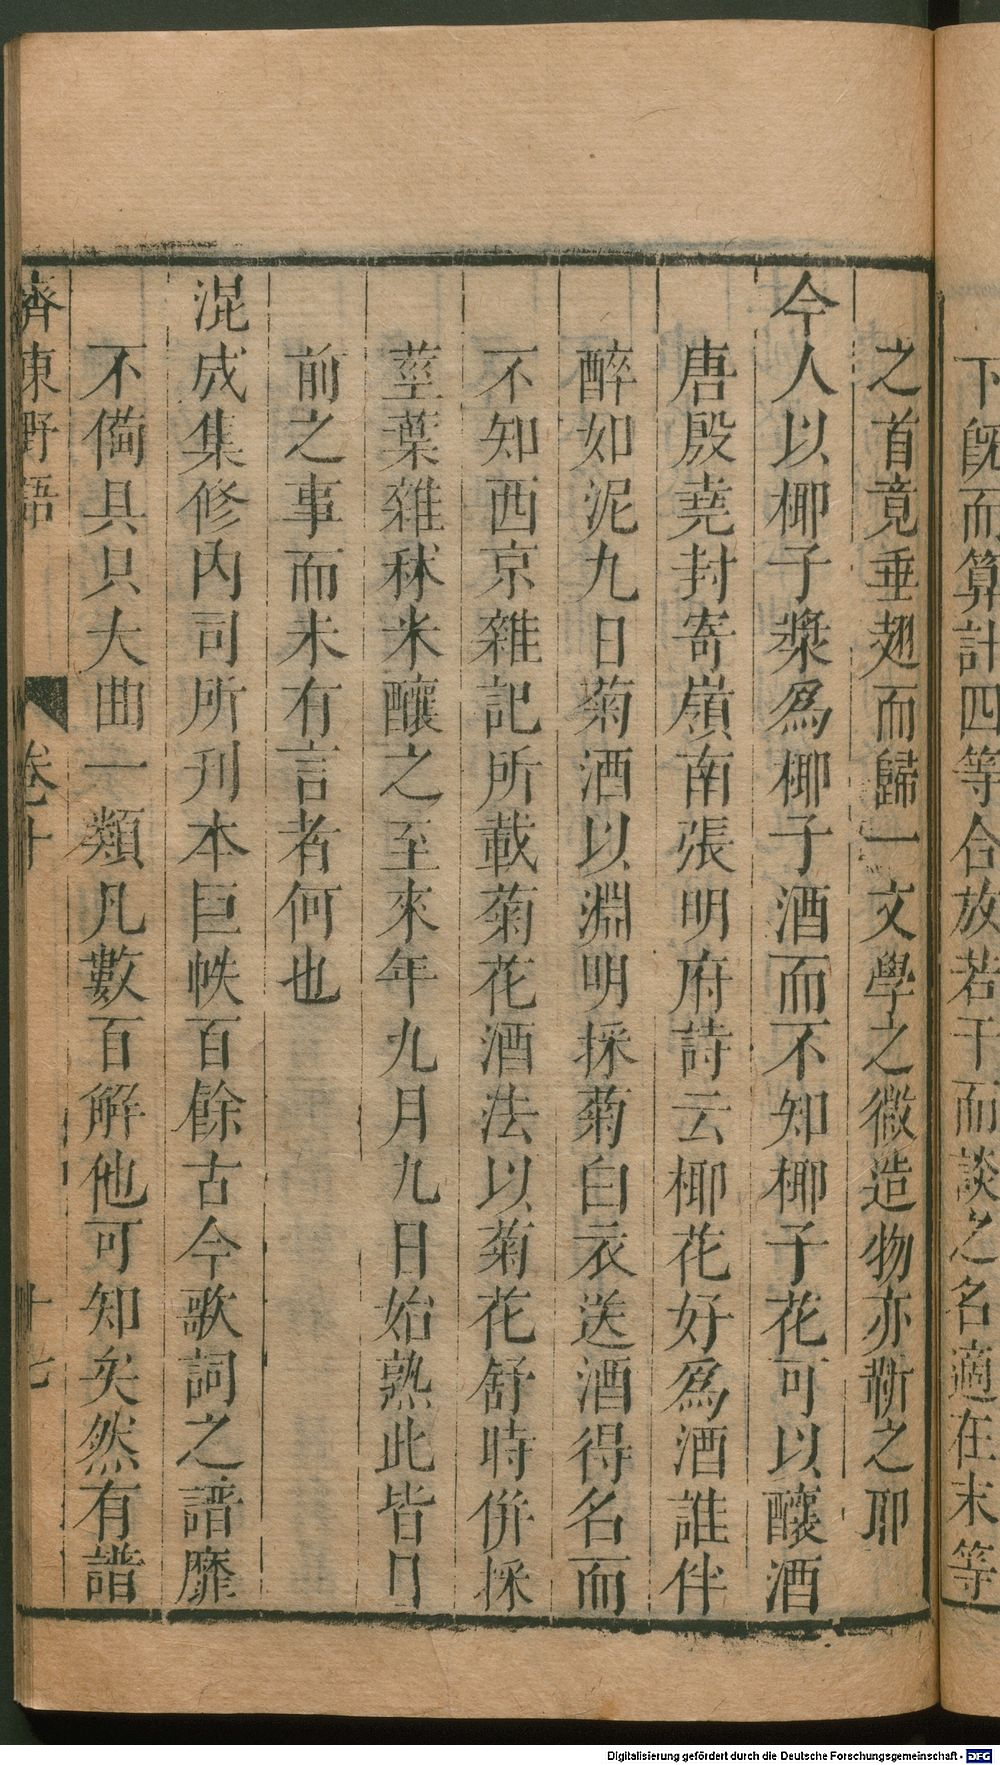 下旣而算計四等合放若干而談之名適在末等
之首竟垂翅而歸一文學之微造物亦靳之耶
今人以椰子漿爲椰子酒而不知椰子花可以釀酒
唐殷堯封寄嶺南張明府詩云椰花好爲酒誰伴
醉如泥九日菊酒以淵明採菊白衣送酒得名而
不知西京雜記所載菊花酒法以菊花舒時併採
莖葉雜秫米釀之至來年九月九日始熟此皆目
前之事而未有言者何也
混成集修內司所刊本巨帙百餘古今歌詞之譜靡
不備具只大曲一類凡數百解他可知矣然有譜
齊東野語 卷十 十七
Digitalisierung gefördert durch die Deutsche Forschungsgemeinschaft - DFG